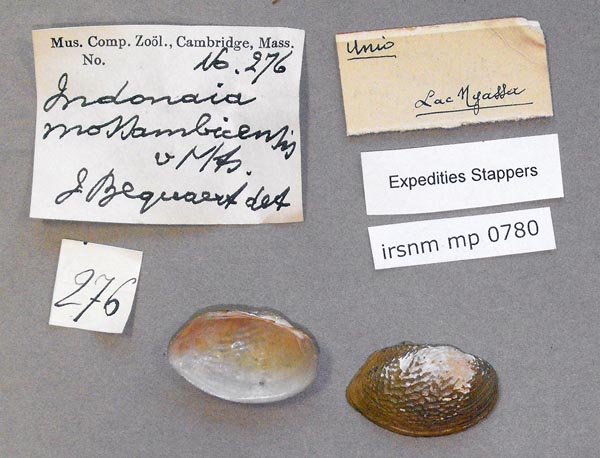 Mus. Comp. Zoöl., Cambridge, Mass.
No. No. 276
Indonaia
mossambicensis
v Mts.
J. Bequaert det
276
Unio
Lac Nyassa
Expedities Stappers
irsnm mp 0780